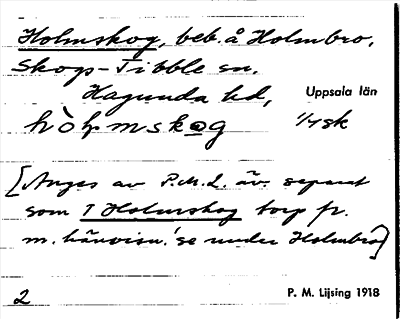 Holmskog, beb. å Holmbro,
Skog-Tibble sn.
Hagunda hd, Uppsala län
hòḷmskog 1/4 sk
[Anges av P.M.L. äv. separat
som T Holmskog torp fr.
m. hänvisn. 'se under Holmbro']
2 P. M. Lijsing 1918